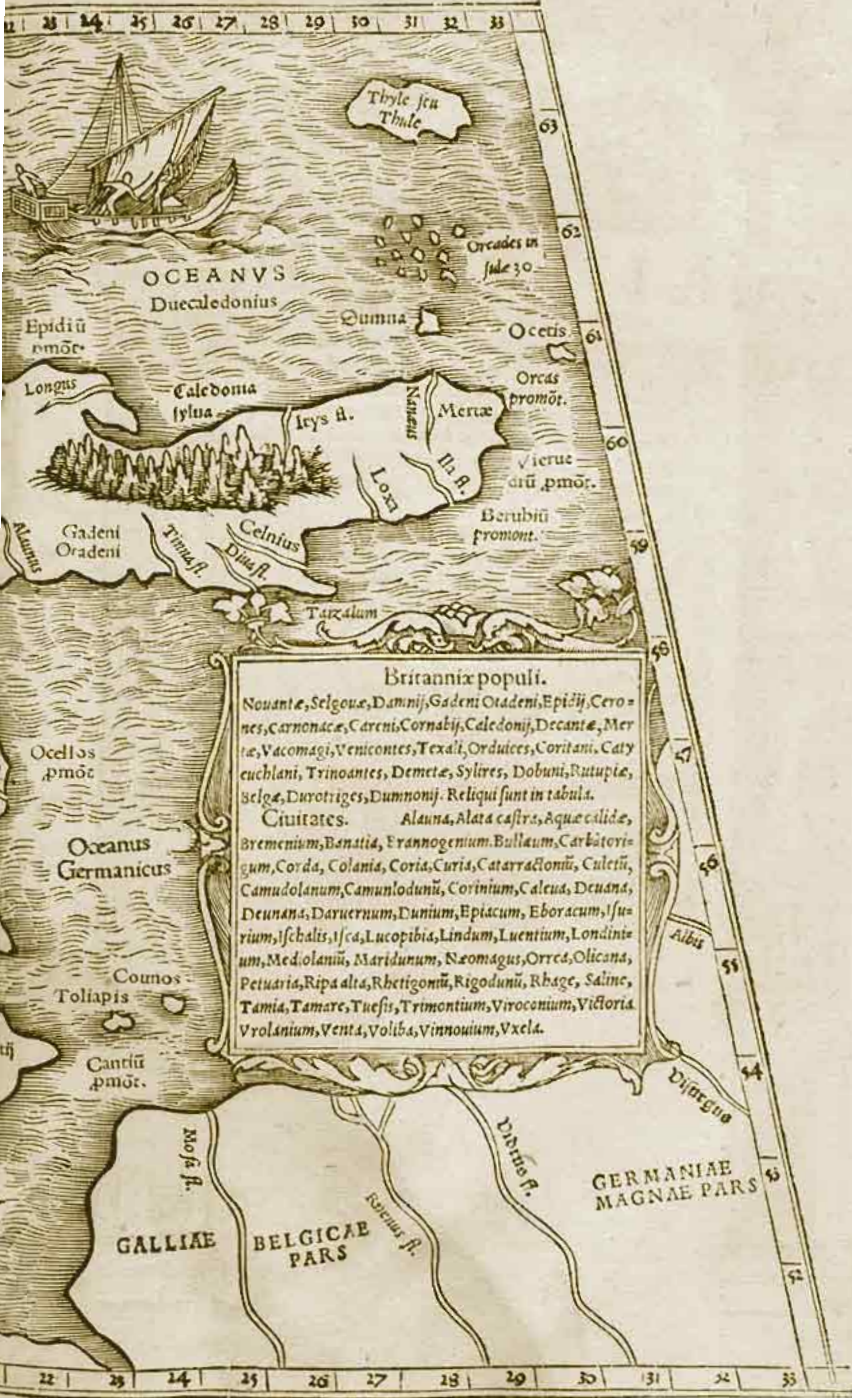 23 24 25 26 27 28 29 30 31 32 33
Thyle seu
Thule
63
62
Orcades in
sulæ 30
OCEANVS
Duecaledonius
Dumna
Ocetis
61
Epidiū
pmōt.
Longus
Caledonia
sylua
Itys fl.
Nauæus
Mertæ
Orcas
promōt.
60
Loxa
Ila fl.
Vierue
drū pmōt.
Berubiū
promont.
59
Alaunus
Gadeni
Otadeni
Tinna fl.
Celnius
Diua fl.
Taizalum
58
Britanniæ populi.
Nouantæ, Selgouæ, Damnij, Gadeni Otadeni, Epidij, Cero=
nes, Carnonacæ, Careni, Cornabij, Caledonij, Decantæ, Mer
tæ, Vacomagi, Venicontes, Texali, Orduices, Coritani, Caty
euchlani, Trinoantes, Demetæ, Sylires, Dobuni, Rutupiæ,
Belgæ, Durotriges, Dumnonij. Reliqui sunt in tabula.
Ciuitates. Alauna, Alata castra, Aquæ calidæ,
Bremenium, Banatia, Brannogenium. Bullæum, Carbātori=
gum, Corda, Colania, Coria, Curia, Catarractoniū, Culetū,
Camudolanum, Camunlodunū, Corinium, Caleua, Deuana,
Deunana, Daruernum, Dunium, Epiacum, Eboracum, Isu=
rium, Ischalis, Isca, Lucopibia, Lindum, Luentium, Londini=
um, Mediolaniū, Maridunum, Næomagus, Orrea, Olicana,
Petuaria, Ripa alta, Rhetigoniū, Rigodunū, Rhage, Saline,
Tamia, Tamare, Tuesis, Trimontium, Viroconium, Victoria
Vrolanium, Venta, Voliba, Vinnouium, Vxela.
57
Ocellos
pmōt
Oceanus
Germanicus
56
Albis
55
Counos
Toliapis
Cantiū
pmōt.
54
Visurgius
Mosa fl.
Vidrus fl.
53
GERMANIAE
MAGNAE PARS
GALLIAE
BELGICAE
PARS
Rhenus fl.
52
22 23 24 25 26 27 28 29 30 31 32 33